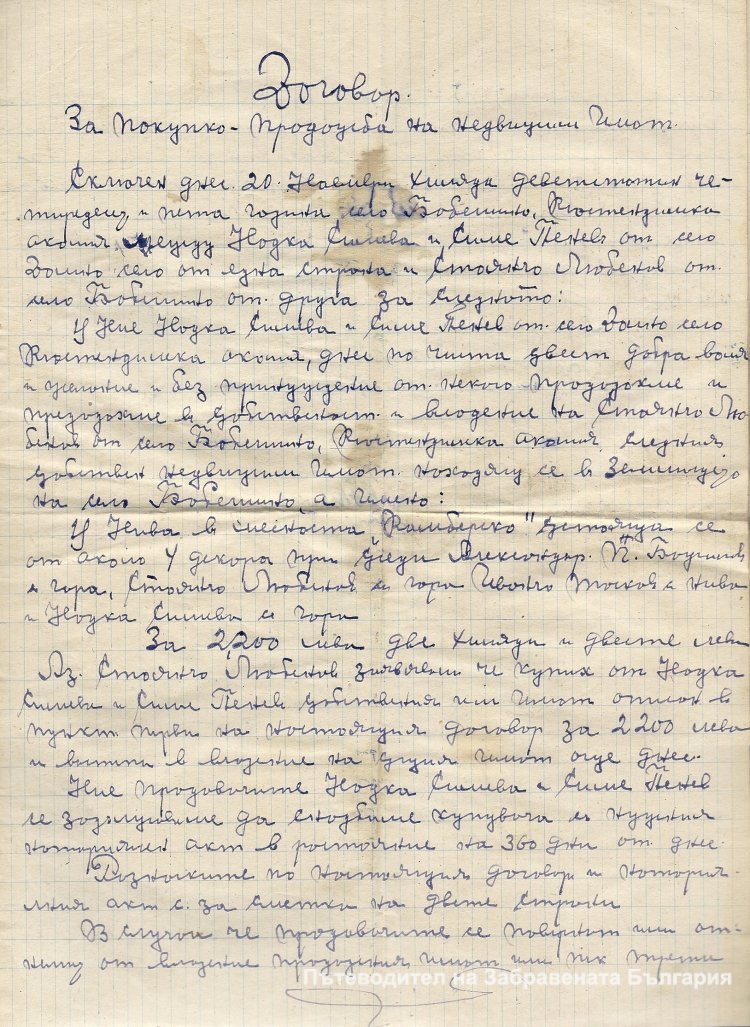 Договор.
За покупко-продажба на недвижим имот.
Сключен днес 20. Ноември хиляда деветстотин че-
тиридесет и пета година село Бобешино, Кюстендилска
околия между Нодка Симева и Симе Пенев от село
Долно село от една страна и Стоянчо Любенов от
село Бобешино от друга за следното:
1/ Ние Нодка Симева и Симе Пенев от село Долно село
Кюстендилска околия, днес по чиста добра воля
и желание и без принуждение от някого продадохме и
предадохме в собственост и владение на Стоянчо Лю-
бенов от село Бобешино, Кюстендилска околия следния
собствен недвижим имот находящ се в землището
на село Бобешино а имено:
1/ Нива в месноста "Камберско" състояща се
от около 4 декара при съседи Александър П.
с гора, Стоянчо Любенов с гора Иванчо с нива
и Нодка Симева с гора
За 2,200 лева две хиляди и двесте лева
Аз Стоянчо Любенов заявявам че купих от Нодка
Симева и Симе Пенев собствения им имот описан в
пункт първи на настоящия договор за 2200 лева
и влизам в владение на същия имот още днес.
Ние продавачите Нодка Симева и Симе Пенев
се задължаваме да снабдиме купувача с нуждния
нотариален акт в растояние на 360 дни от днес.
Разноските по настоящия договор и нотария-
лния акт с за сметка на двете страни
В случай че продавачите се повърнат или от-
немат от владение продадения имот или пък трети
Пътеводител на Забравената България